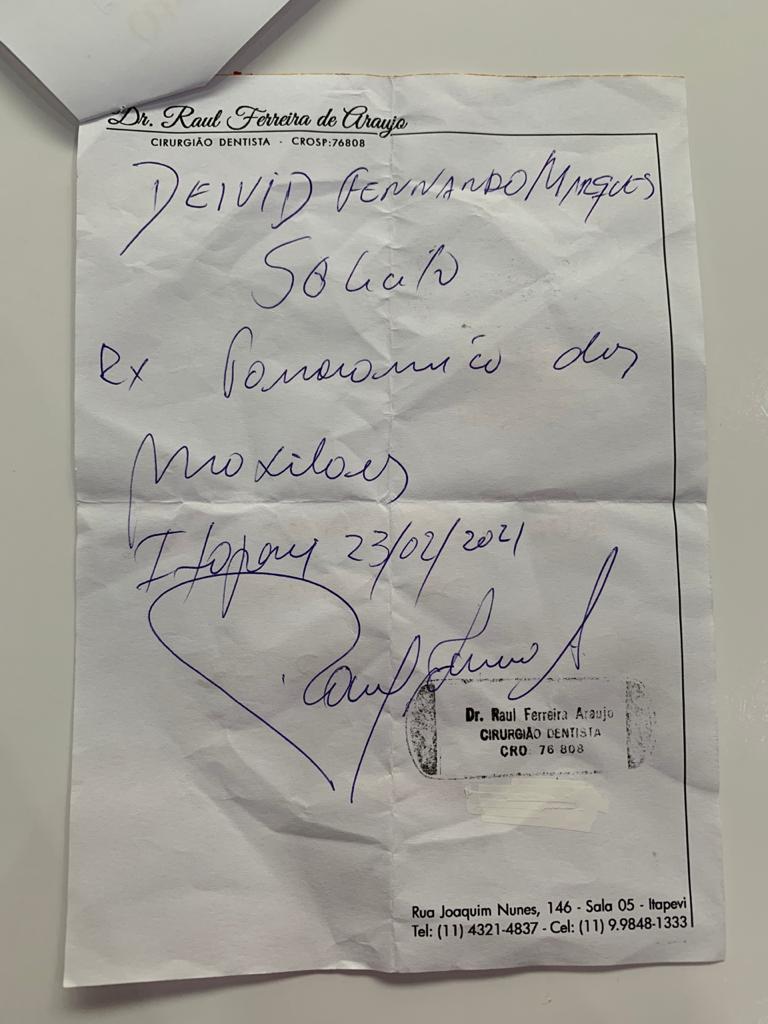 Dr. Raul Ferreira de Araujo
CIRURGIÃO DENTISTA · CROSP:76808
DEIVID FERNANDO MARQUES
Solicito
Rx Panoramico dos
Maxilares
Itapevi 23/02/2021
Dr. Raul Ferreira Araujo
CIRURGIÃO DENTISTA
CRO 76 808
Rua Joaquim Nunes, 146 - Sala 05 - Itapevi
Tel: (11) 4321-4837 - Cel: (11) 9.9848-1333